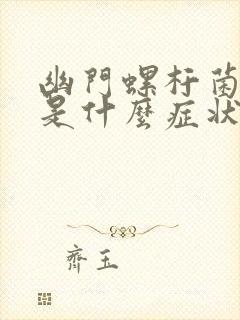 幽門螺杆菌
是什麼症狀
齊玉